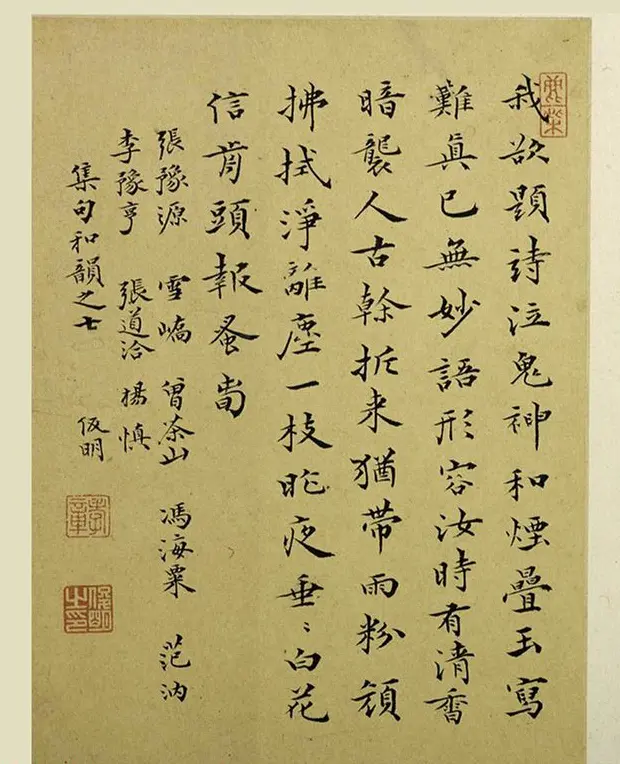 我欲題詩泣鬼神和煙疊玉寫
難真已無妙語形容汝時有清香
暗襲人古幹折来猶帶雨粉
拂拭淨離塵一枝昨夜垂〻白花
信前頭報蚤旾
張豫源 雪嶠 曾茶山 馮海粟 范汭
李豫亨 張道洽 楊慎
集句和韻之七 俊明
孝章
俊明之印